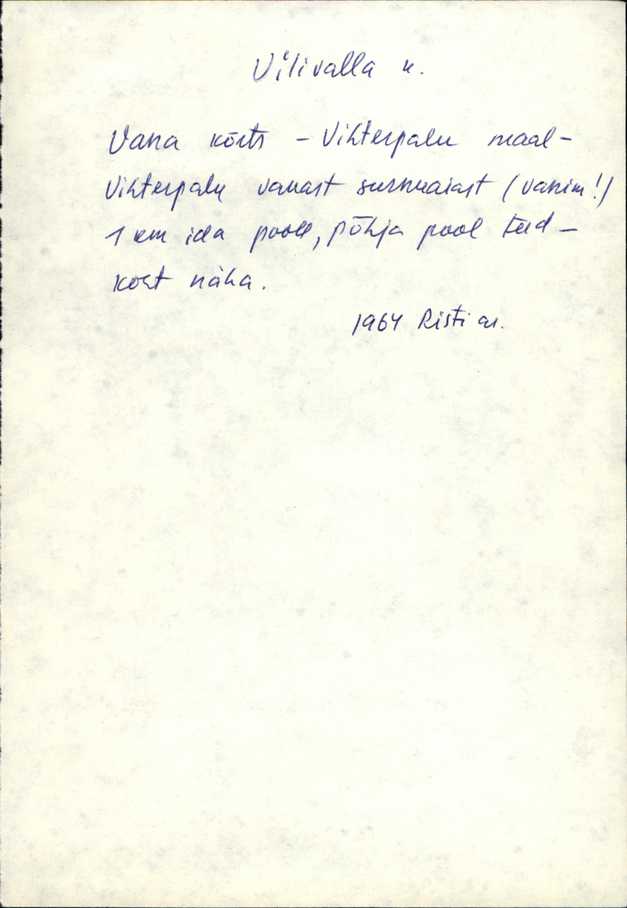 Vilivalla k.
Vana kõrts – Vihterpalu maal –
Vihterpalu vanast surnuaiast (vanim!)
1 km ida pool, põhja pool teed –
koht näha.
1964 Risti